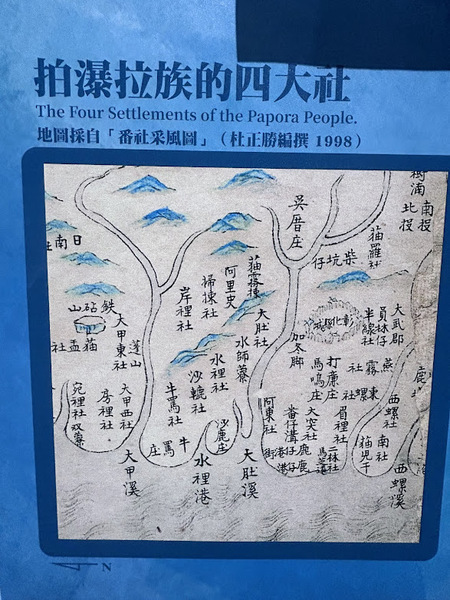 拍瀑拉族的四大社
The Four Settlements of the Papora People.
地圖採自「番社采風圖」（杜正勝編撰 1998）
南投
北投
吳厝庄
貓羅社
柴坑仔
日南社
貓霧捒
阿里史
掃捒社
岸裡社
鐵砧山
大甲東社
蓬山
貓盂社
宛裡社
双寮
房裡社
大甲西社
大甲溪
牛罵社
牛罵庄
沙轆社
沙鹿庄
水裡社
水裡港
水師寮
大肚社
大肚溪
彰化縣城
大武郡
員林仔
半線社
加冬脚
打廉庄
馬鳴庄
燕霧社
東螺社
西螺社
眉裡社
大突社
阿東社
番仔溝
鹿仔港
二林社
南社
貓兒干
西螺溪
鹿
N